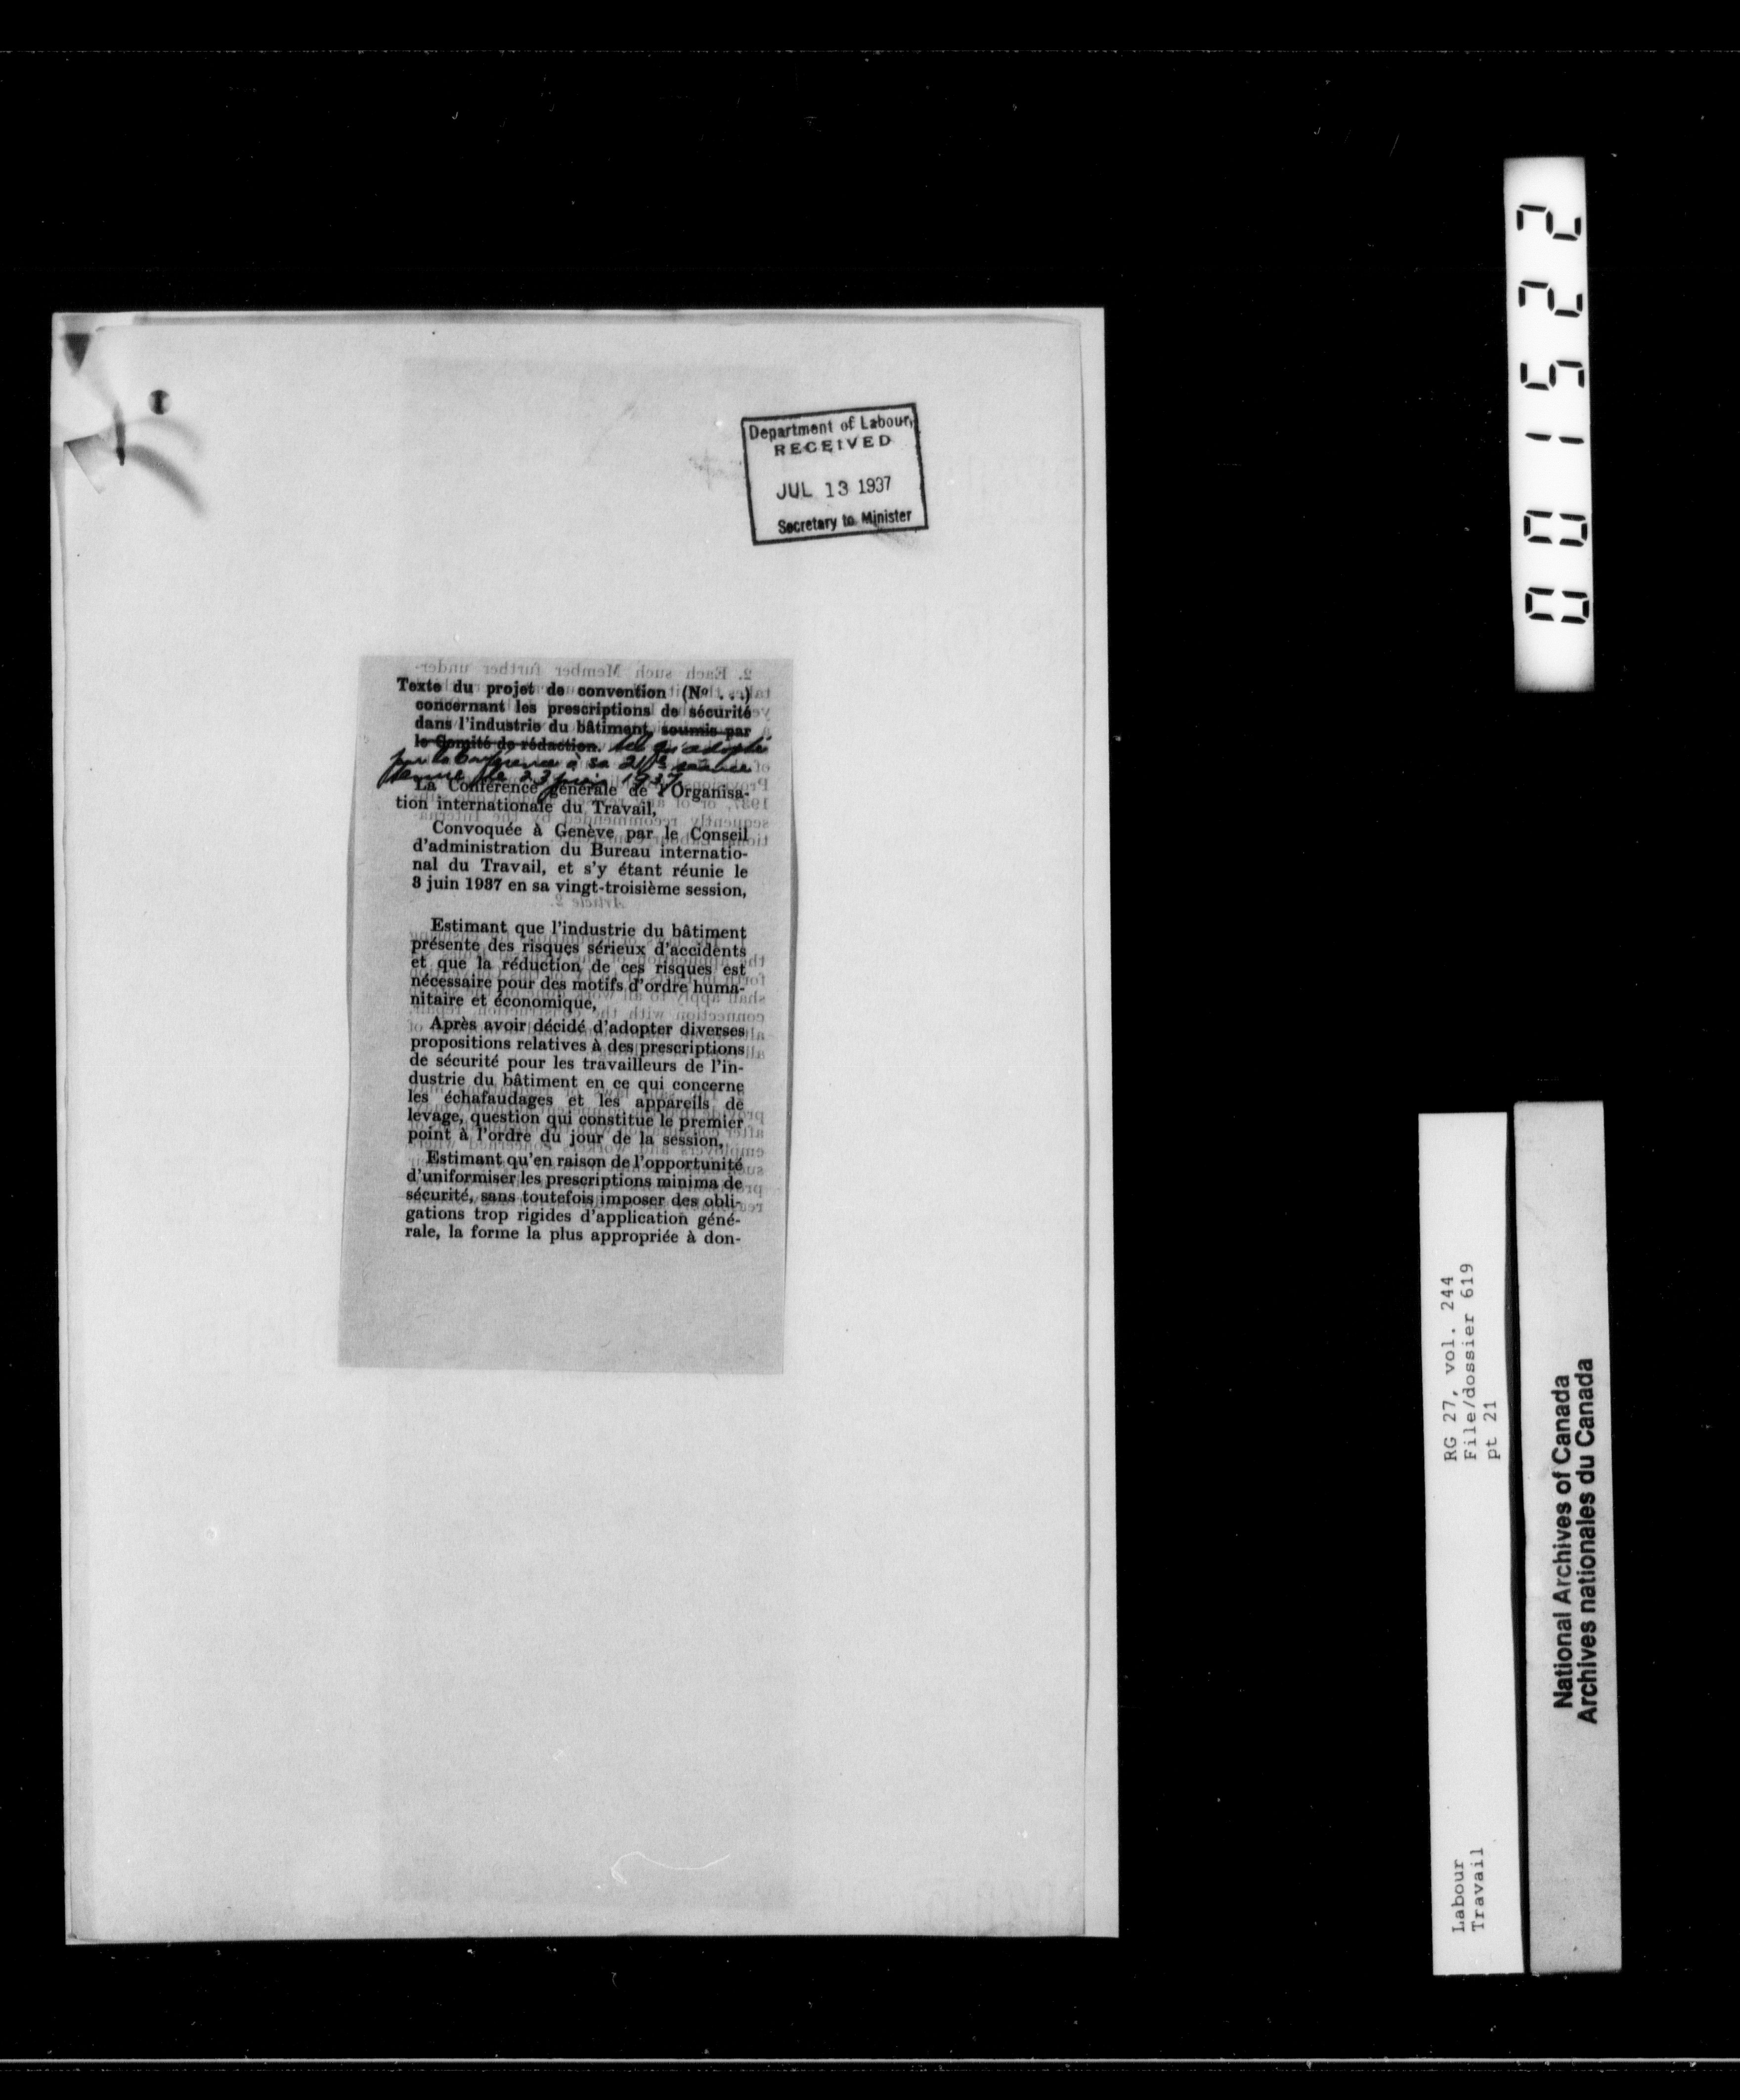 Department of Labour,
RECEIVED
JUL 13 1937
Secretary to Minister
Texte du projet de convention (Nº . . .)
concernant les prescriptions de sécurité
dans l'industrie du bâtiment, soumis par
le Comité de rédaction. tel qu'adopté
par la Conférence à sa 21e séance
tenue le 23 juin 1937
La Conférence générale de l'Organisa-
tion internationale du Travail,
Convoquée à Genève par le Conseil
d'administration du Bureau internatio-
nal du Travail, et s'y étant réunie le
3 juin 1937 en sa vingt-troisième session,
Estimant que l'industrie du bâtiment
présente des risques sérieux d'accidents
et que la réduction de ces risques est
nécessaire pour des motifs d'ordre huma-
nitaire et économique,
Après avoir décidé d'adopter diverses
propositions relatives à des prescriptions
de sécurité pour les travailleurs de l'in-
dustrie du bâtiment en ce qui concerne
les échafaudages et les appareils de
levage, question qui constitue le premier
point à l'ordre du jour de la session,
Estimant qu'en raison de l'opportunité
d'uniformiser les prescriptions minima de
sécurité, sans toutefois imposer des obli-
gations trop rigides d'application géné-
rale, la forme la plus appropriée à don-
001522
RG 27, vol. 244
File/dossier 619
pt 21
Labour
Travail
National Archives of Canada
Archives nationales du Canada